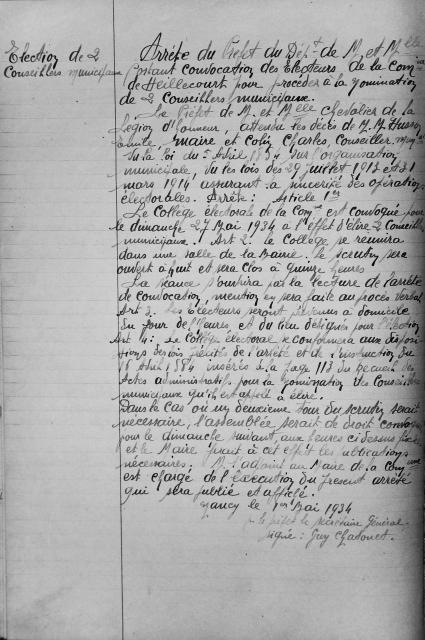 Election de 2
Conseillers municipaux
Arrête du Préfet du Dépt de M. et Melle
Portant convocation des Electeurs de la Come
de Heillecourt pour procéder à la nomination
de 2 Conseillers municipaux.
Le Préfet de M. et Melle Chevalier de la
Légion d'honneur, attendu les décès de M.M. Husson
Emile, maire et Colin Charles, Conseiller, mpal
Vu la loi du 5 Avril 1884 sur l'organisation
municipale, vu les lois des 29 juillet 1913 et 31
mars 1914 assurant la sincérité des opérations
électorales. Arrête: Article 1er
Le Collège électorale de la Come est convoqué pour
le dimanche 27 Mai 1934 à l'effet d'élire 2 Conseillers
municipaux. Art 2: le Collège se réunira
dans une salle de la Mairie. le scrutin sera
ouvert à huit et sera clos à quinze heures
La séance s'ouvrira par la lecture de l'arrêté
de convocation, mention en sera faite au procès verbal
Art 3. Les Electeurs seront prévenus à domicile
du jour de l'heures, et du lieu désignés pour l'élection
Art 4: Le Collège électoral se conformera aux disposi-
tions des lois précités de l'arrêté et de l'instruction du
18 Avril 1884 insérés à la page 113 du recueil des
Actes administratifs pour la nomination des Conseillers
municipaux qu'il est appelé à élire.
Dans le cas où un deuxième tour du scrutin serait
nécessaire, l'assemblée serait de droit convoquée
pour le dimanche suivant, aux heures ci dessus fixées
et le Maire ferait à cet effet les publications
nécessaires; M. l'adjoint au Maire de la Commune
est chargé de l'exécution du présent arrêté
qui sera publié et affiché.
Nancy le 1er Mai 1934
le préfet le secrétaire Général
signé: Guy